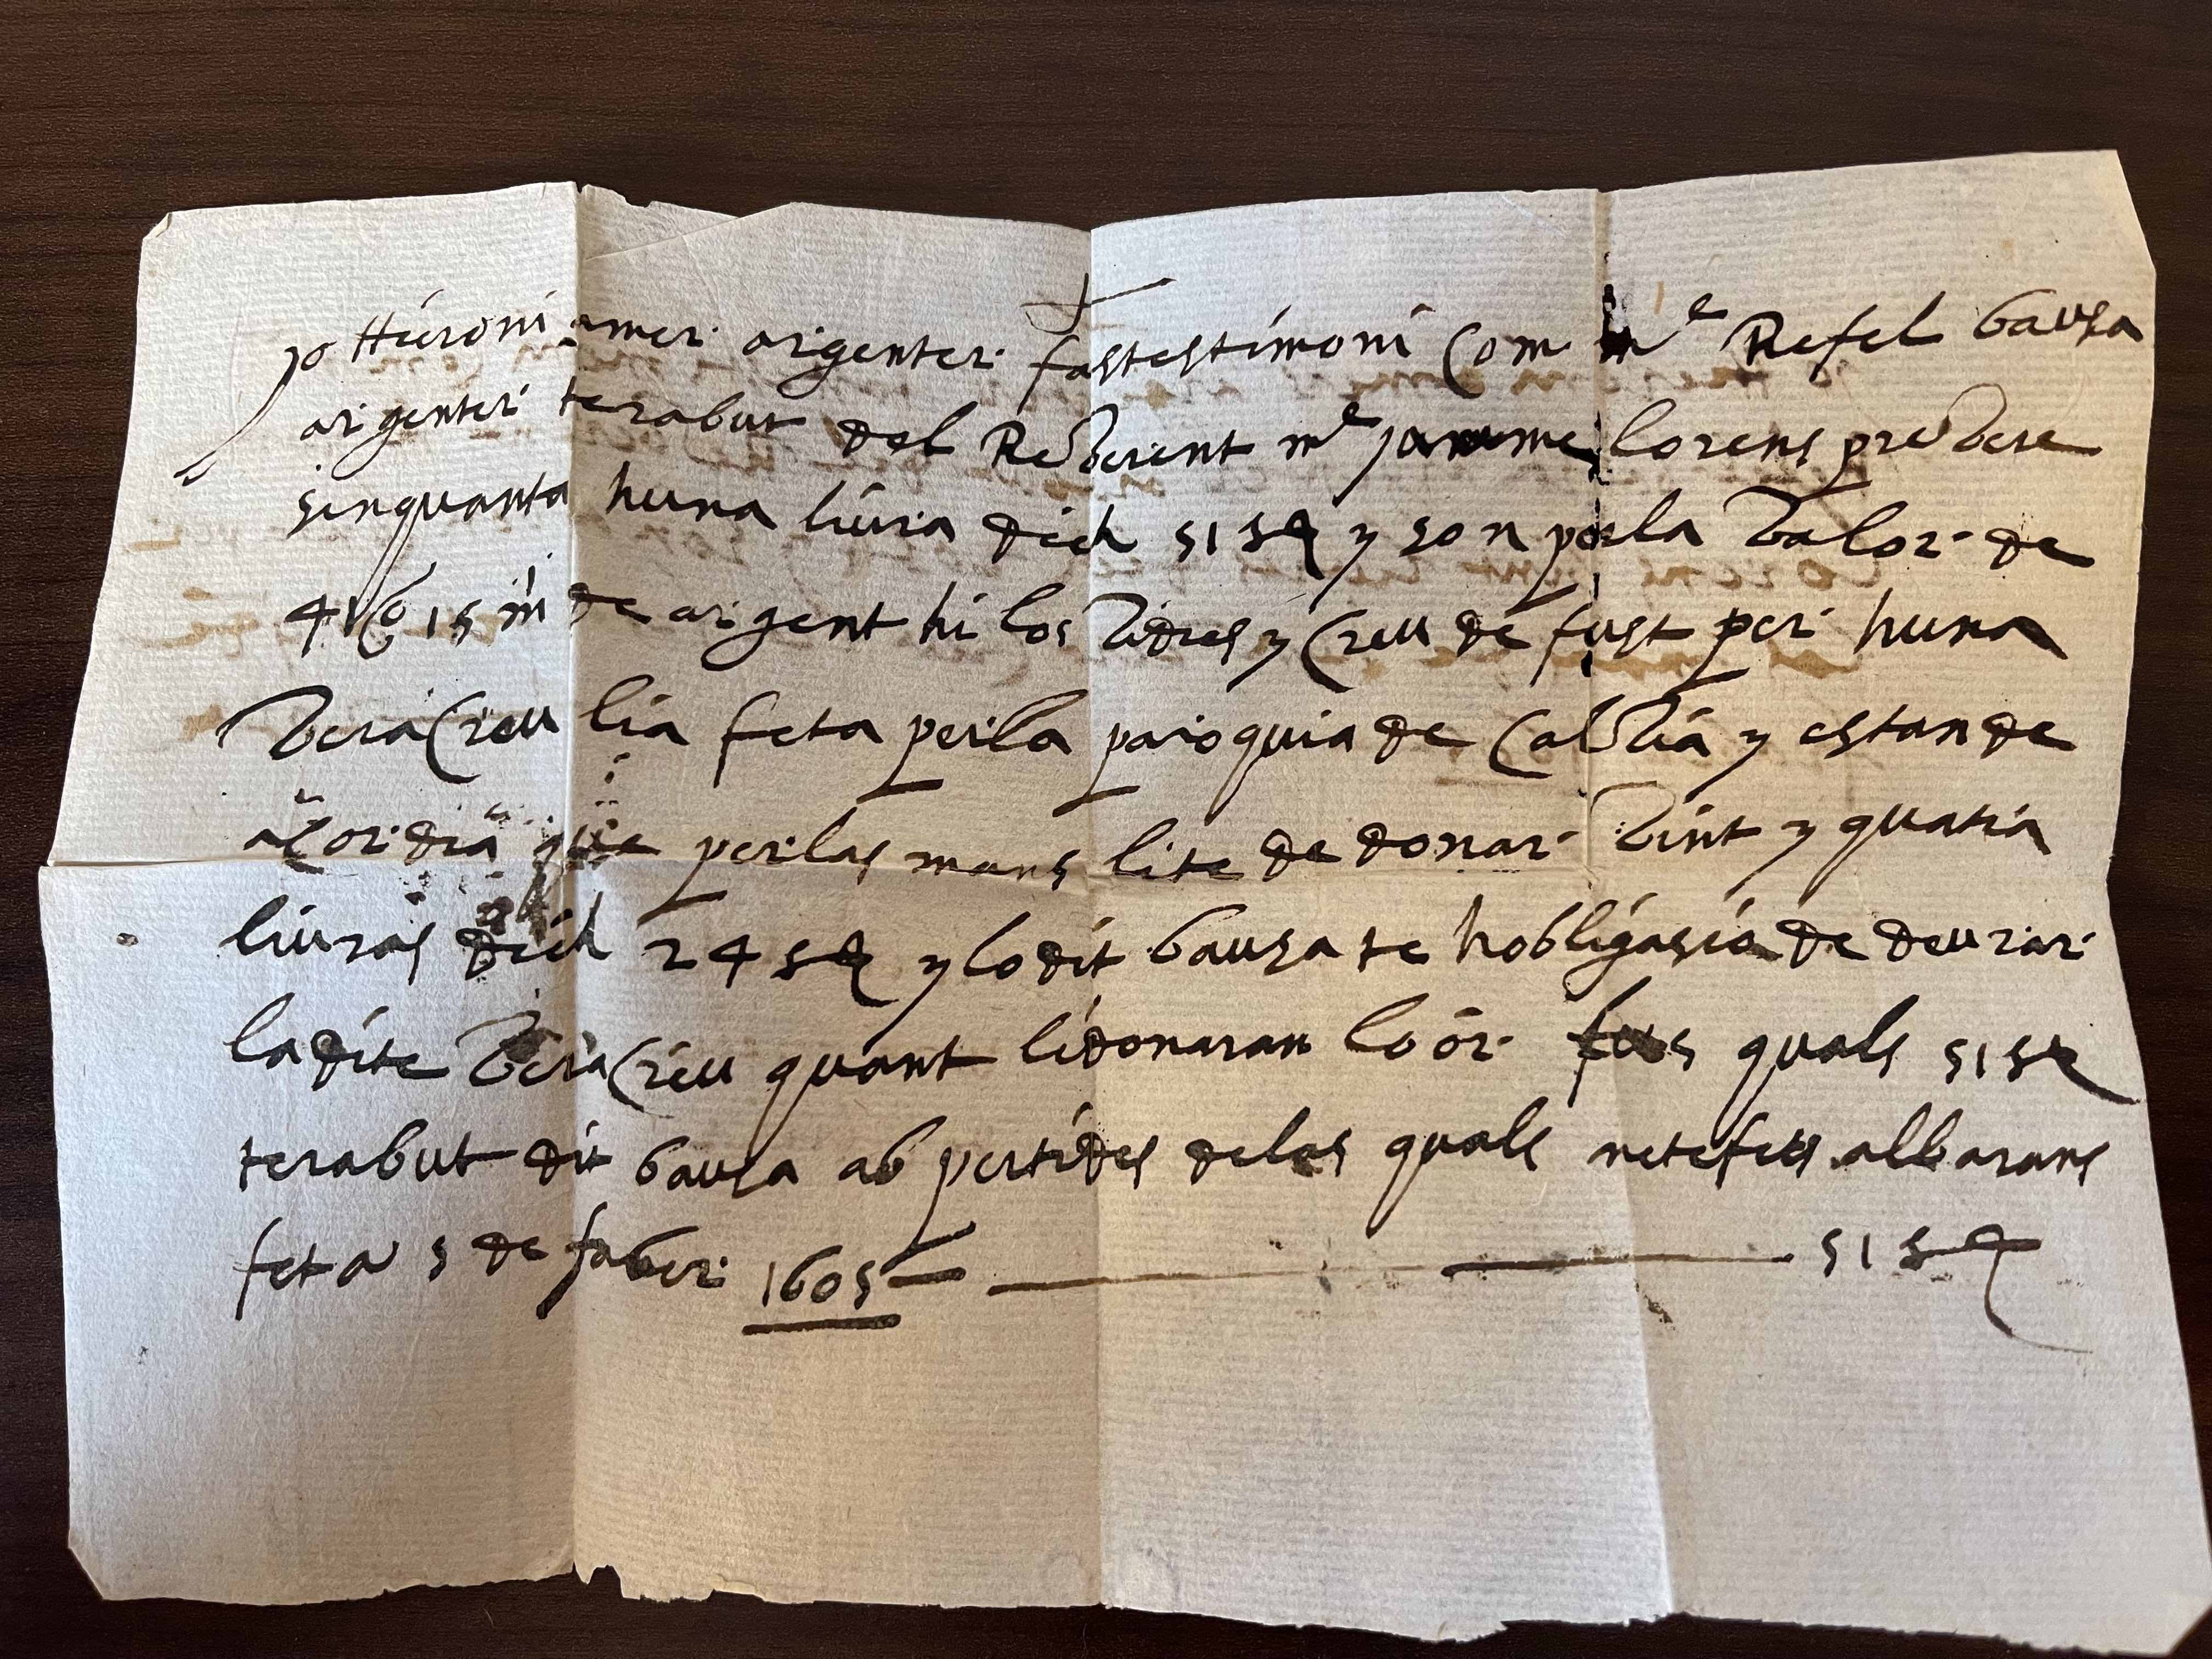 jo Hieroni amer argenter fas testimoni Com m^e Refel bauza
argenter te rabut del Reverent m^e jaume lorens prevere
sinquanta huna liura dich 51 s y son perla valor de
4 15 de argent hi los vidres y Creu de fust per huna
vera Creu lia feta perla paroquia de Calvia y estan de
acordia que perlas mans lite de donar vint y quatra
liuras dich 24 s y lodit bauza te hobligasio de deurar
ladite vera Creu quant lidonaran lo or quals 51 s
te rabut dit bauza ab pertides delas quals netefets albarans
feta 5 de faber 1605 51 s